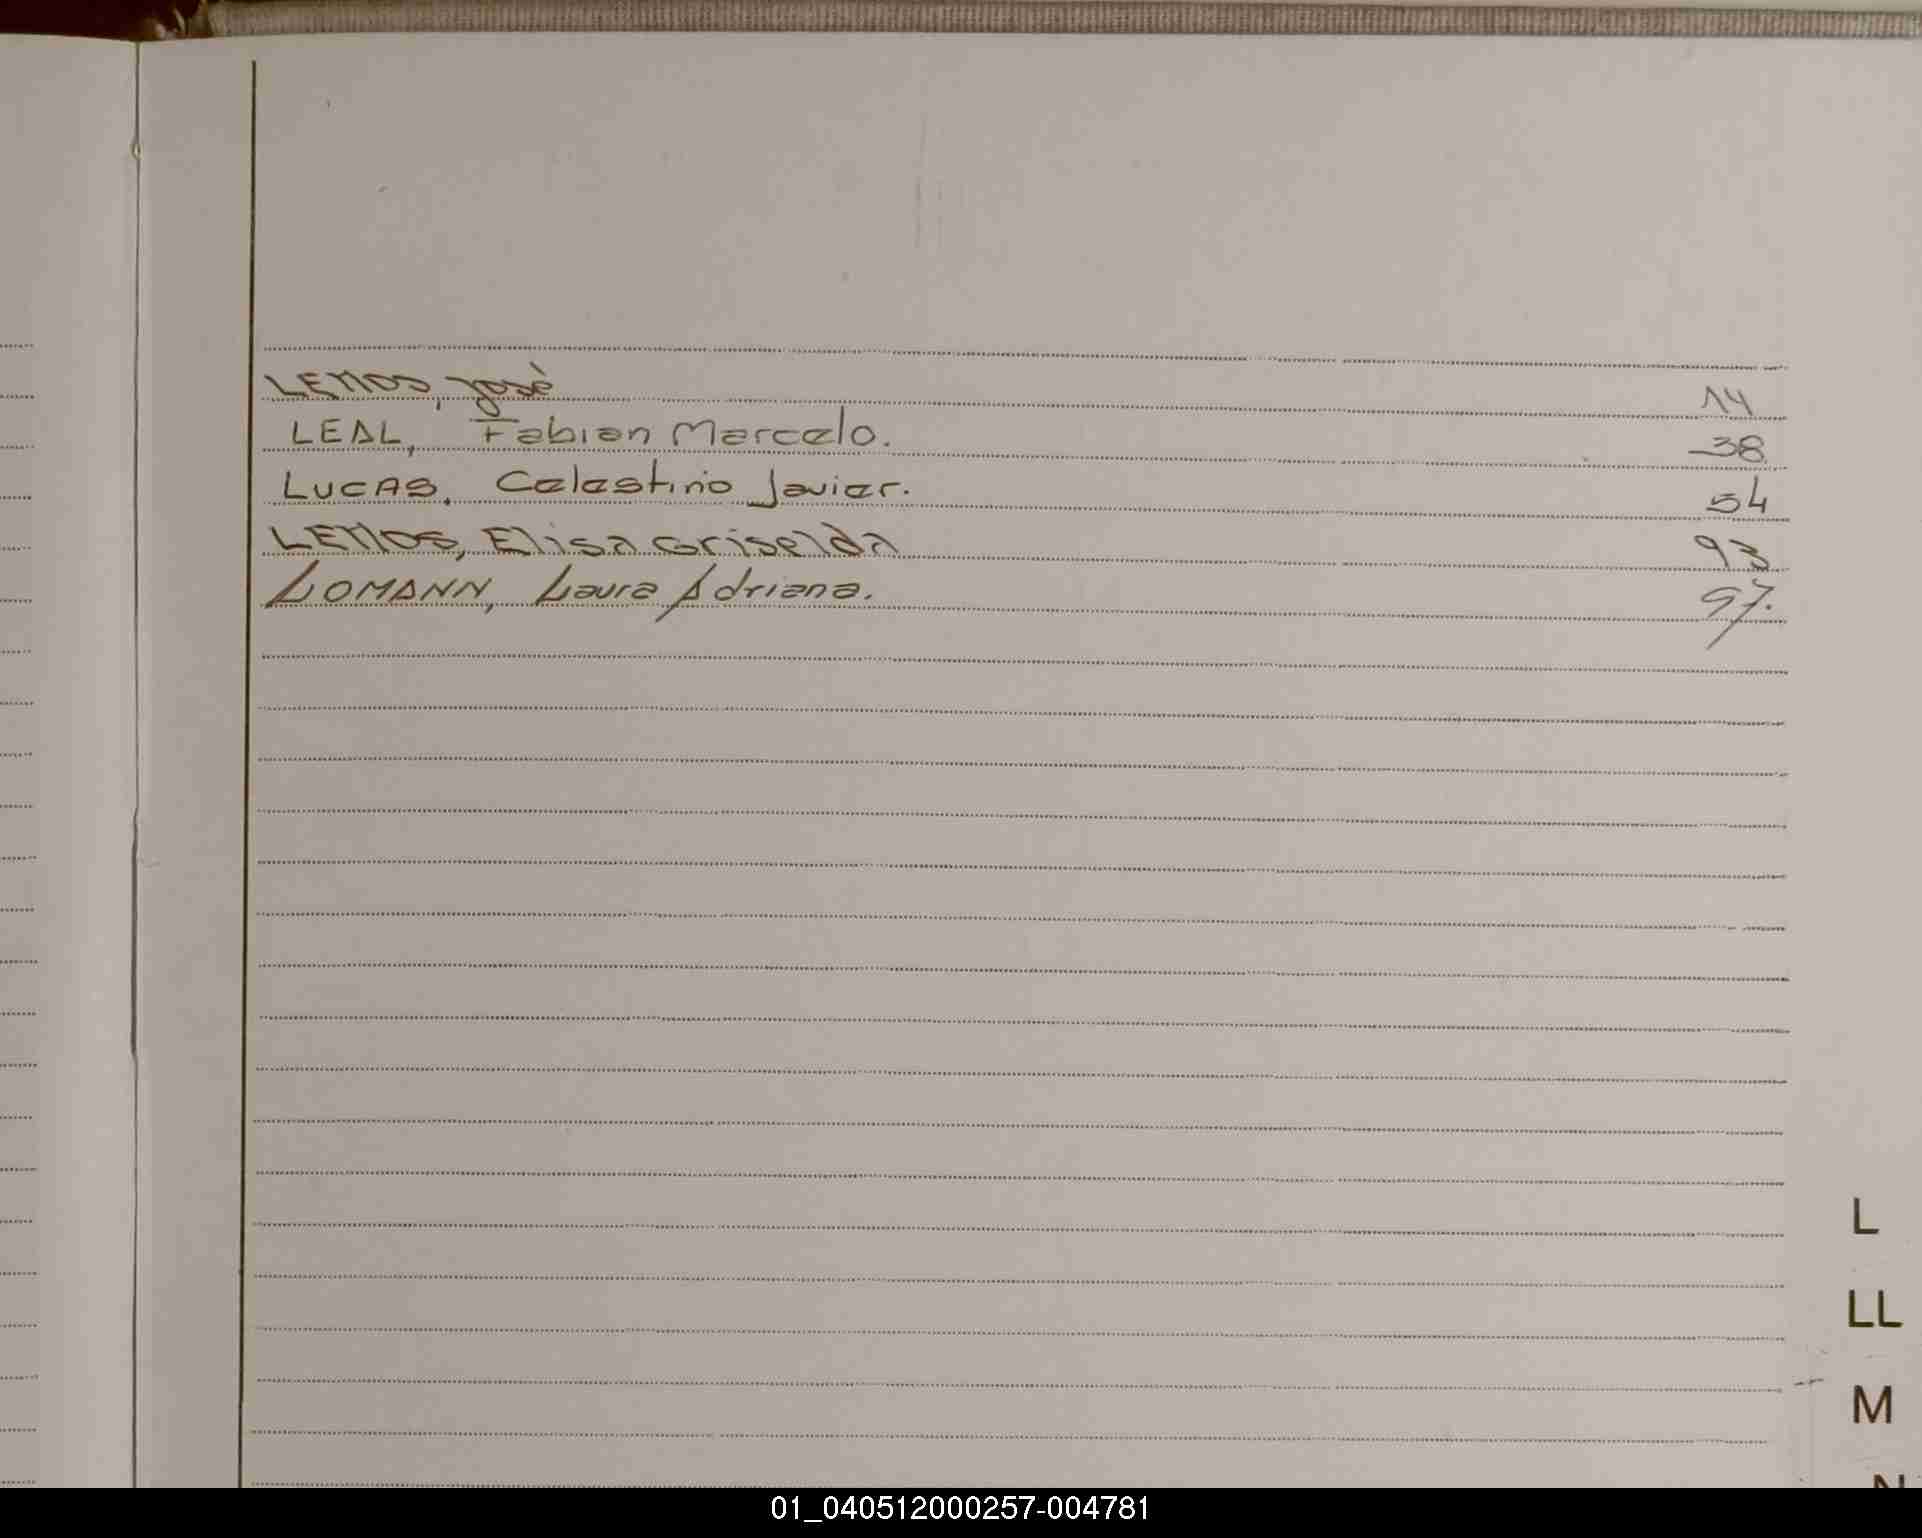 LEMOS, José 14
LEAL, Fabian Marcelo. 38
LUCAS, Celestino Javier. 54
LEMOS, Elisa Griselda 93
LOMANN, Laura Adriana. 97.
L
LL
M
N
01_040512000257-004781